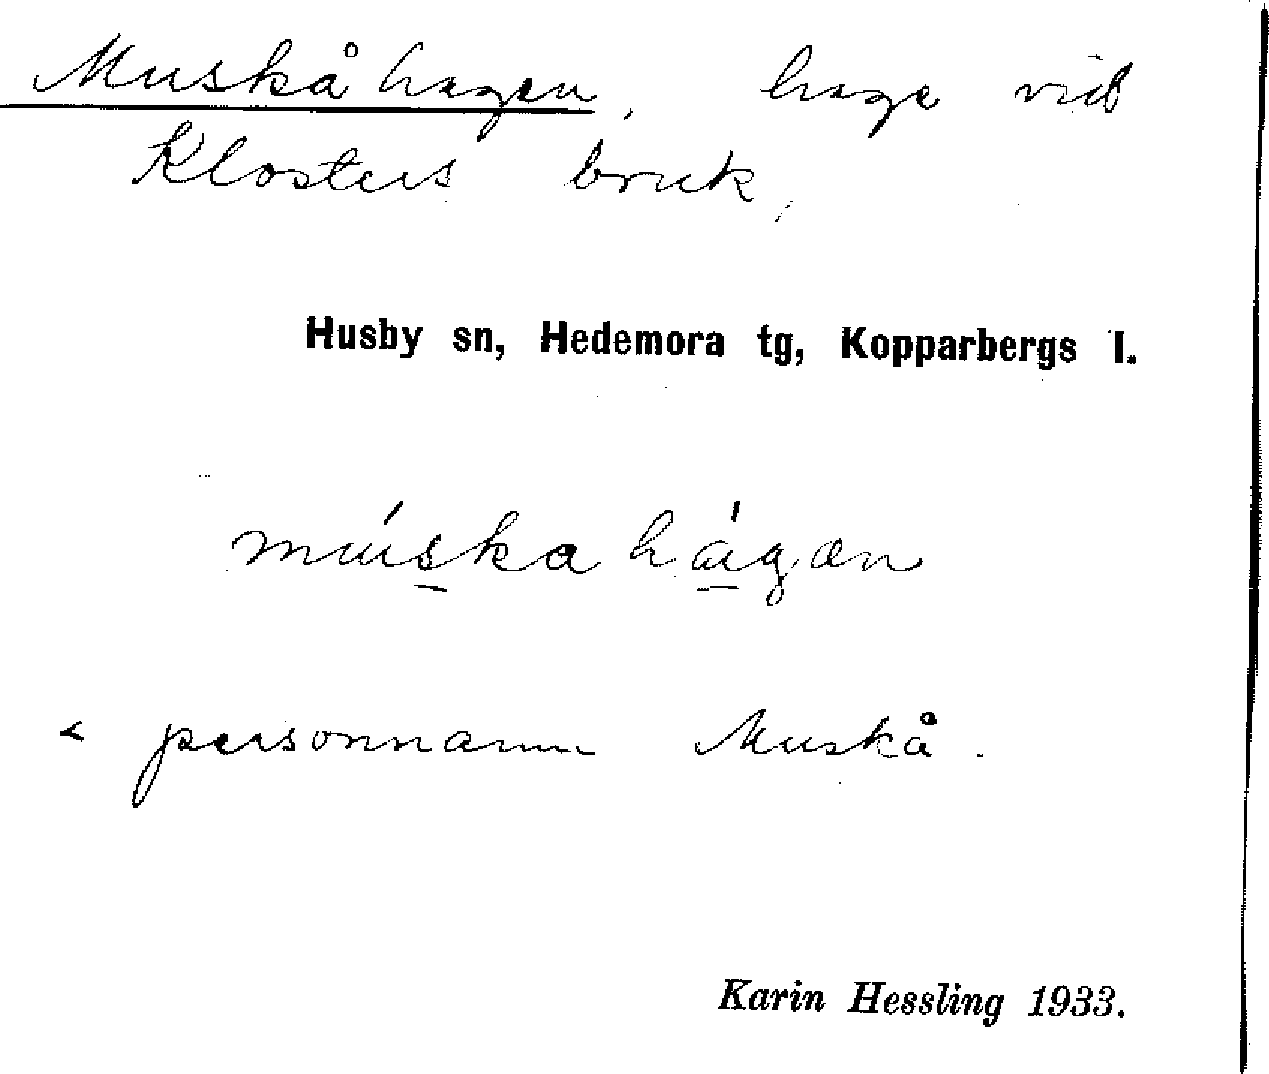 Muskåhagen, hage vid
Klosters bruk,
Husby sn, Hedemora tg, Kopparbergs l.
múska hágan
< personnamn Muskå.
Karin Hessling 1933.